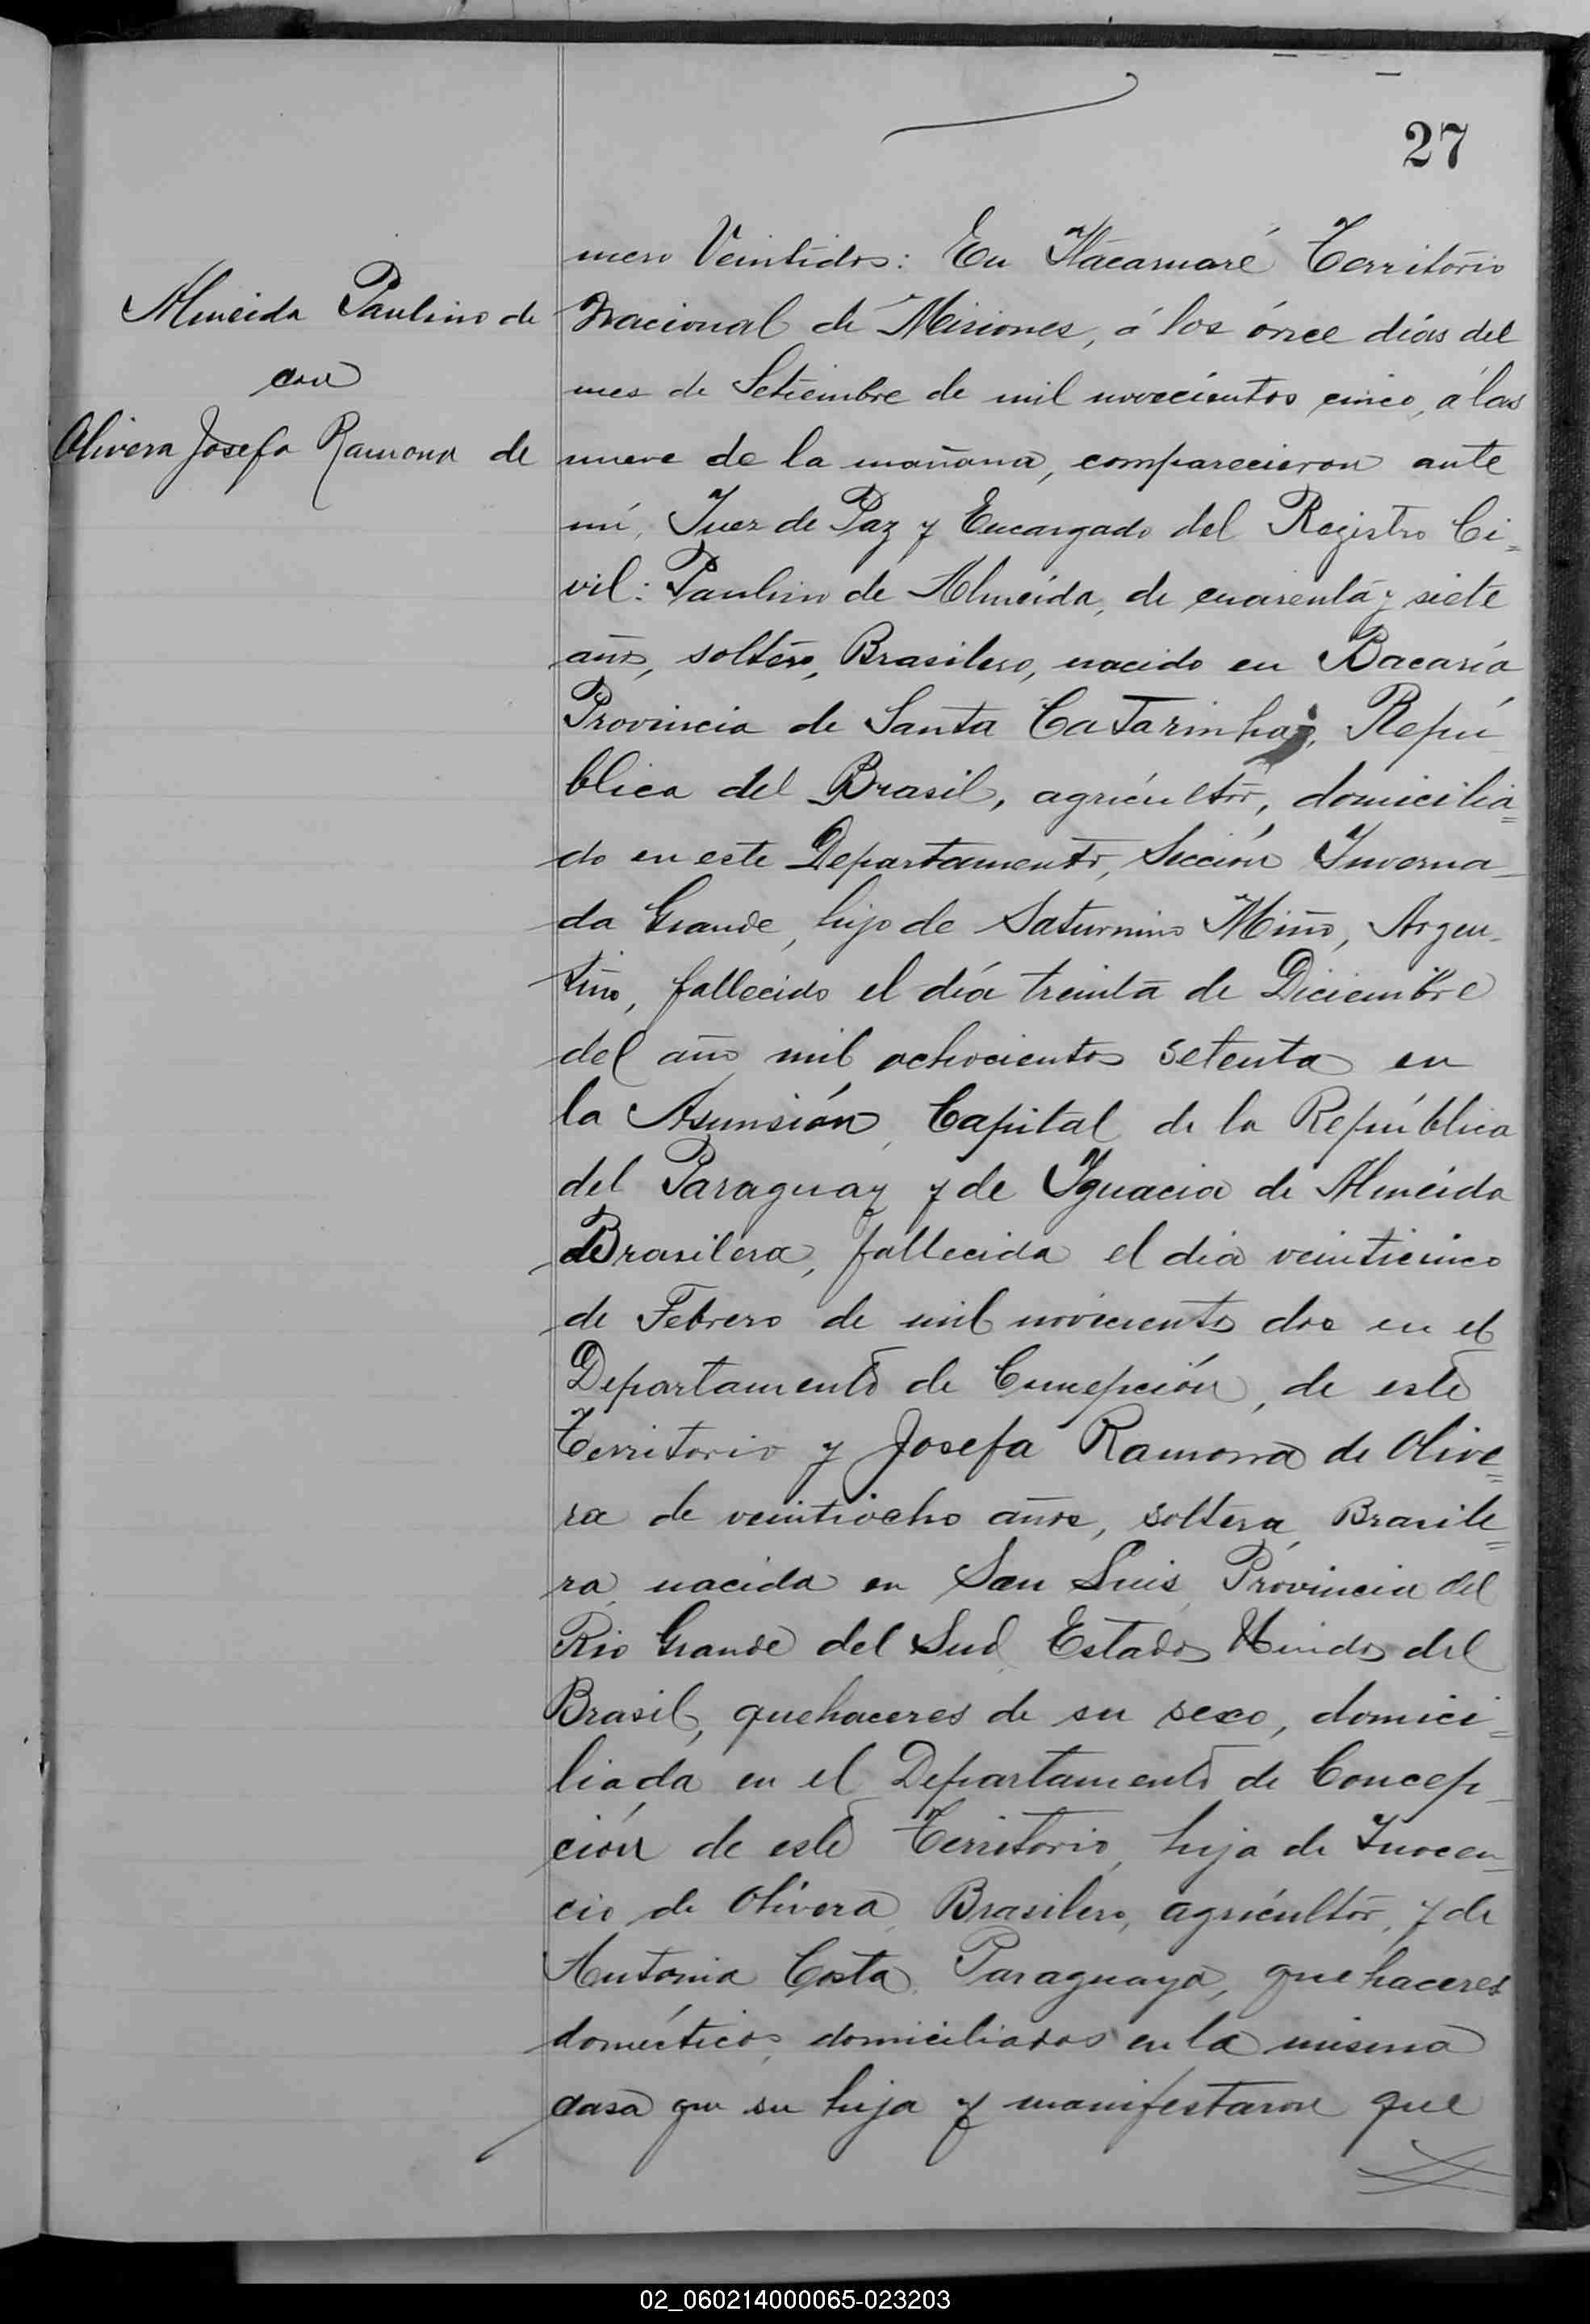 27
Almeida Paulino de
con
Olivera Josefa Ramona de
mero Veintidos: En Itacaruaré Territorio
Nacional de Misiones, á los ónce días del
mes de Setiembre de mil novecientos cinco, á las
nueve de la mañana, comparecieron ante
mí, Juez de Paz y Encargado del Registro Ci=
vil: Paulino de Almeida, de cuarenta y siete
años, soltero, Brasilero, nacido en Bacaría
Provincia de Santa Catarinha, Repú
blica del Brasil, agricultor, domicilia=
do en este Departamento, Sección Inverna-
da Grande, hijo de Saturnino Miño, Argen-
tino, fallecido el día treinta de Diciembre
del año mil ochocientos setenta en
la Asunsión, Capital de la República
del Paraguay y de Ygnacia de Almeida
Brasilera, fallecida el dia veinticinco
de Febrero de mil novecientos dos en el
Departamento de Concepción, de este
Territorio y Josefa Ramona de Olive=
ra de veintiocho años, soltera, Brasile=
ra, nacida en San Luis, Provincia del
Rio Grande del Sud, Estados Unidos del
Brasil, quehaceres de su sexo, domici=
liada en el Departamento de Concep-
ción de este Territorio, hija de Inocen-
cio de Olivera, Brasilero, agricultor, y de
Antonia Costa, Paraguaya, quehaceres
domécticos, domiciliados en la misma
casa que su hija y manifestaron que
02_060214000065-023203